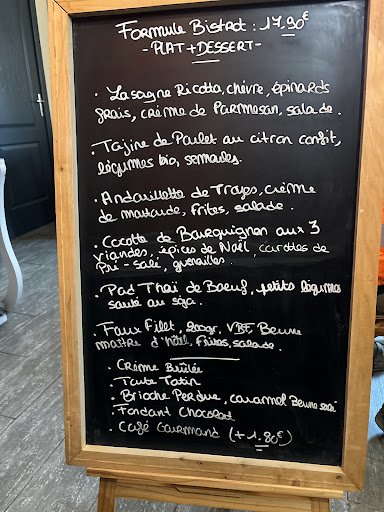 Formule Bistrot : 17,90€
- PLAT + DESSERT -
. Lasagne Ricotta, chèvre, épinards
frais, crème de Parmesan, salade.
. Tajine de Poulet au citron confit,
légumes bio, semoules.
. Andouillette de Troyes, crème
de moutarde, frites, salade.
. Cocotte de Bourguignon aux 3
viandes, épices de Noël, carottes de
Pré-salé, grenailles.
. Pad Thaï de Boeuf, petits légumes
sauté au soja.
. Faux Filet, 200gr, VBF, Beurre
maitre d'hôtel, frites, salade.
. Crème Brûlée
. Tarte Tatin
. Brioche Perdue, caramel Beurre salé
. Fondant Chocolat.
. Café Gourmand (+ 1,80€)